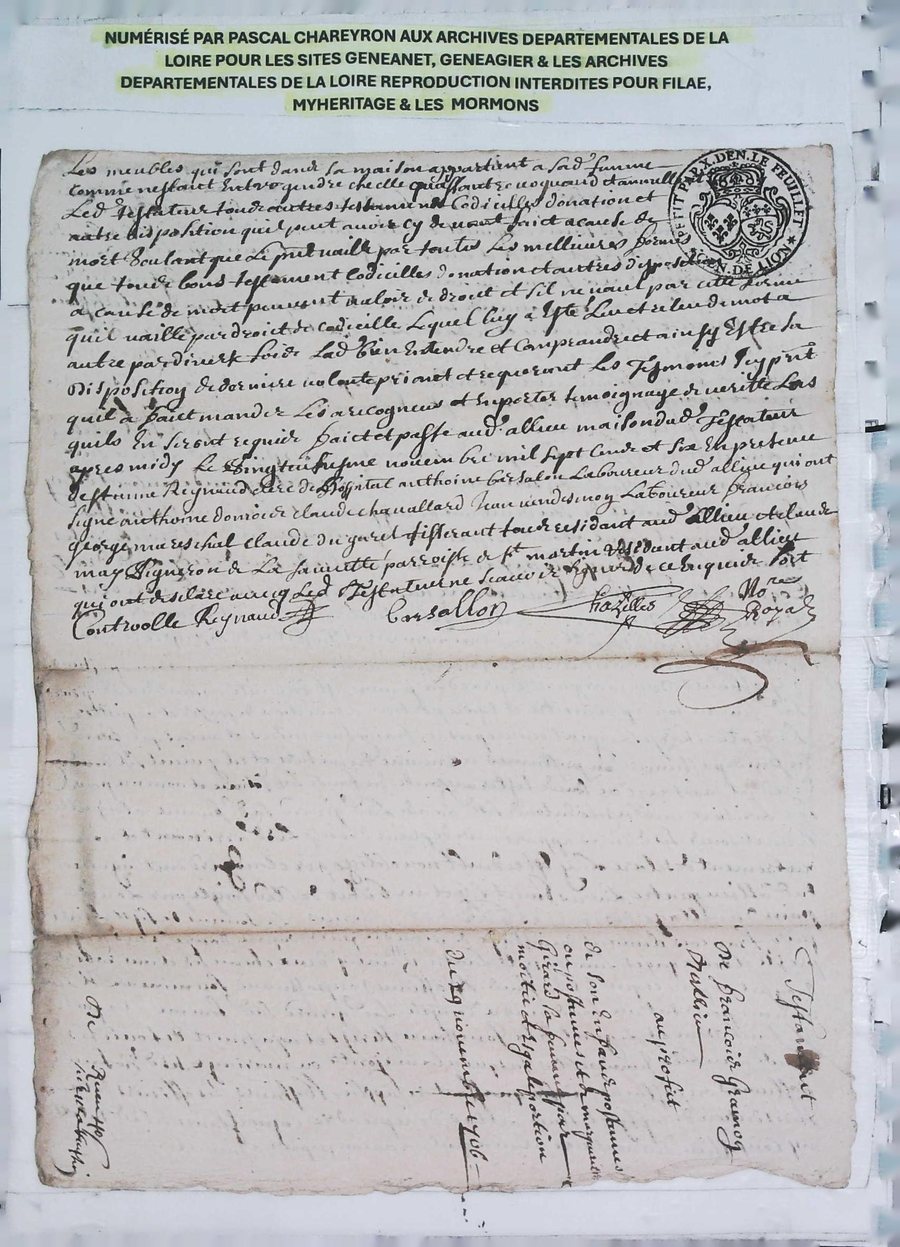 NUMÉRISÉ PAR PASCAL CHAREYRON AUX ARCHIVES DEPARTEMENTALES DE LA
LOIRE POUR LES SITES GENEANET, GENEAGIER & LES ARCHIVES
DEPARTEMENTALES DE LA LOIRE REPRODUCTION INTERDITES POUR FILAE,
MYHERITAGE & LES MORMONS
Les meubles qui sont dans sa maison appartient a sad. femme
comme nestant
Led. testateur toutes autres testaments codicilles donation et
autre disposition quil peut avoir cy devant faict a cause de
mort voulant que le pnt vaille par toutes les melliures formes
que toude bons testament codicilles donation et autres disposition
a cause de mort peuvent valoir de droit et sil ne vaut par cette forme
quil vaille par droit de codicille lequel luy a leu et releu de mot a
autre par diverses fois led. bien entendre et comprandre et ainsy est sa
disposition de derniere volonte priant et requerant les tesmoins icy pnt
quil a faict mander les a recogneus et en porter temoignage de veritté lors
quils en seront requis faict et passe aud. allieu maison dud. testateur
apres midy le vingt neufiesme novembre mil sept cents et six en presence
Reynaud clerc de anthoine bersalon laboureur dud. allieu qui ont
signe anthoine claude chavallard Jean laboureur francois
george mareschal claude du garet tisserant tous residant aud. allieu et claude
may vigneron de la parroisse de st. martin residant aud. allieu
qui ont declaré avecq led. testateur ne scavoir signer de ce enquis soit
Controolle Reynaud Bersallon Chazelles No.re Royal
Testament
De francois gramoy
Dallieu
au profit
de son enfans postumes
ou postumes et a marguerite
Girard sa femme par
moitié et esgale portion
du 29 novembre 1706